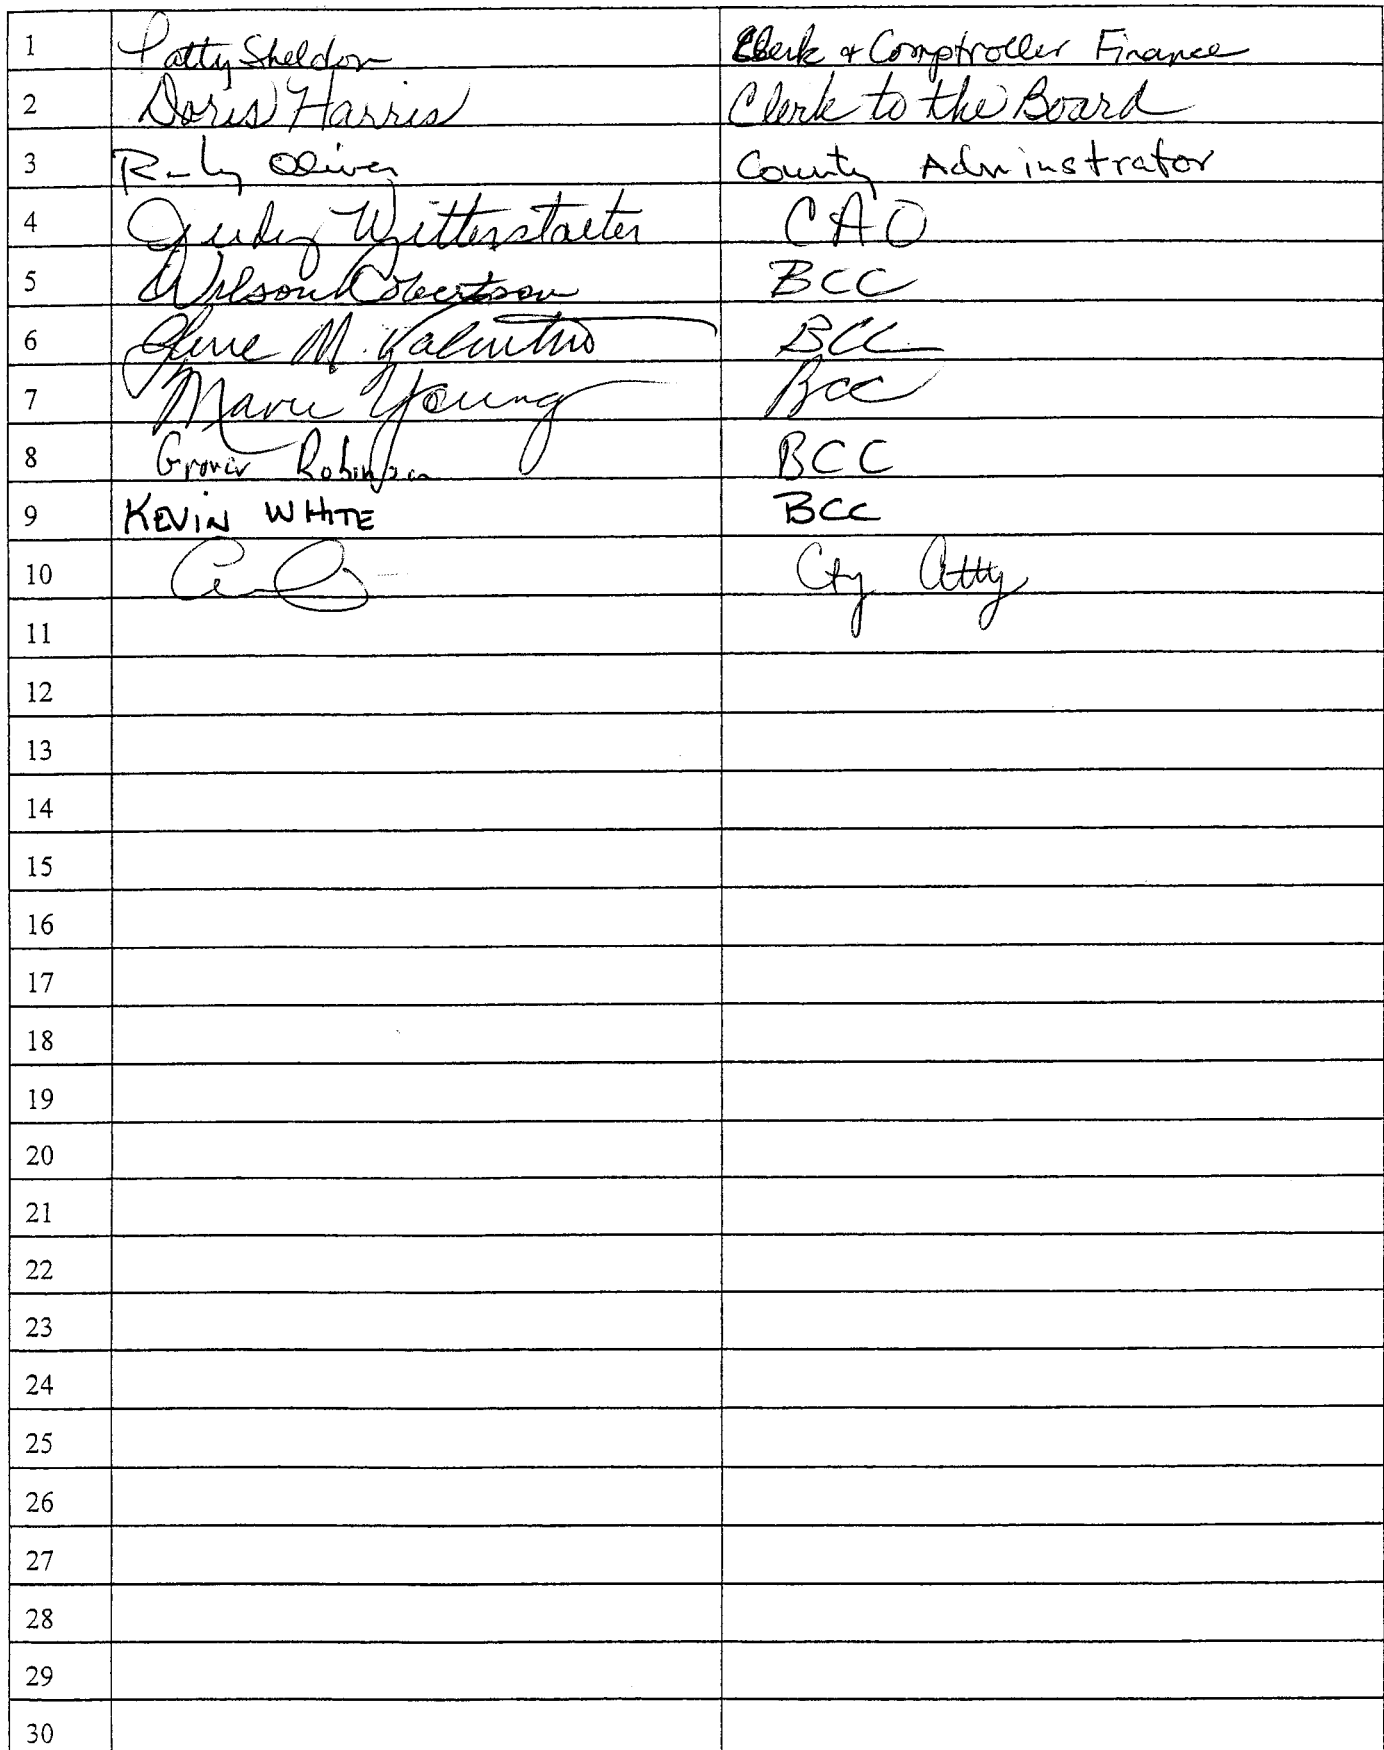 1 Patty Sheldon Clerk & Comptroller Finance
2 Doris Harris Clerk to the Board
3 Randy Oliver County Adminustrator
4 Judy Witterstaeter CAO
5 Wilson Robertson BCC
6 Gene M. Valentino BCC
7 Marie Young BCC
8 Grover Robinson BCC
9 KEVIN WHITE BCC
10 Cty Atty
11
12
13
14
15
16
17
18
19
20
21
22
23
24
25
26
27
28
29
30